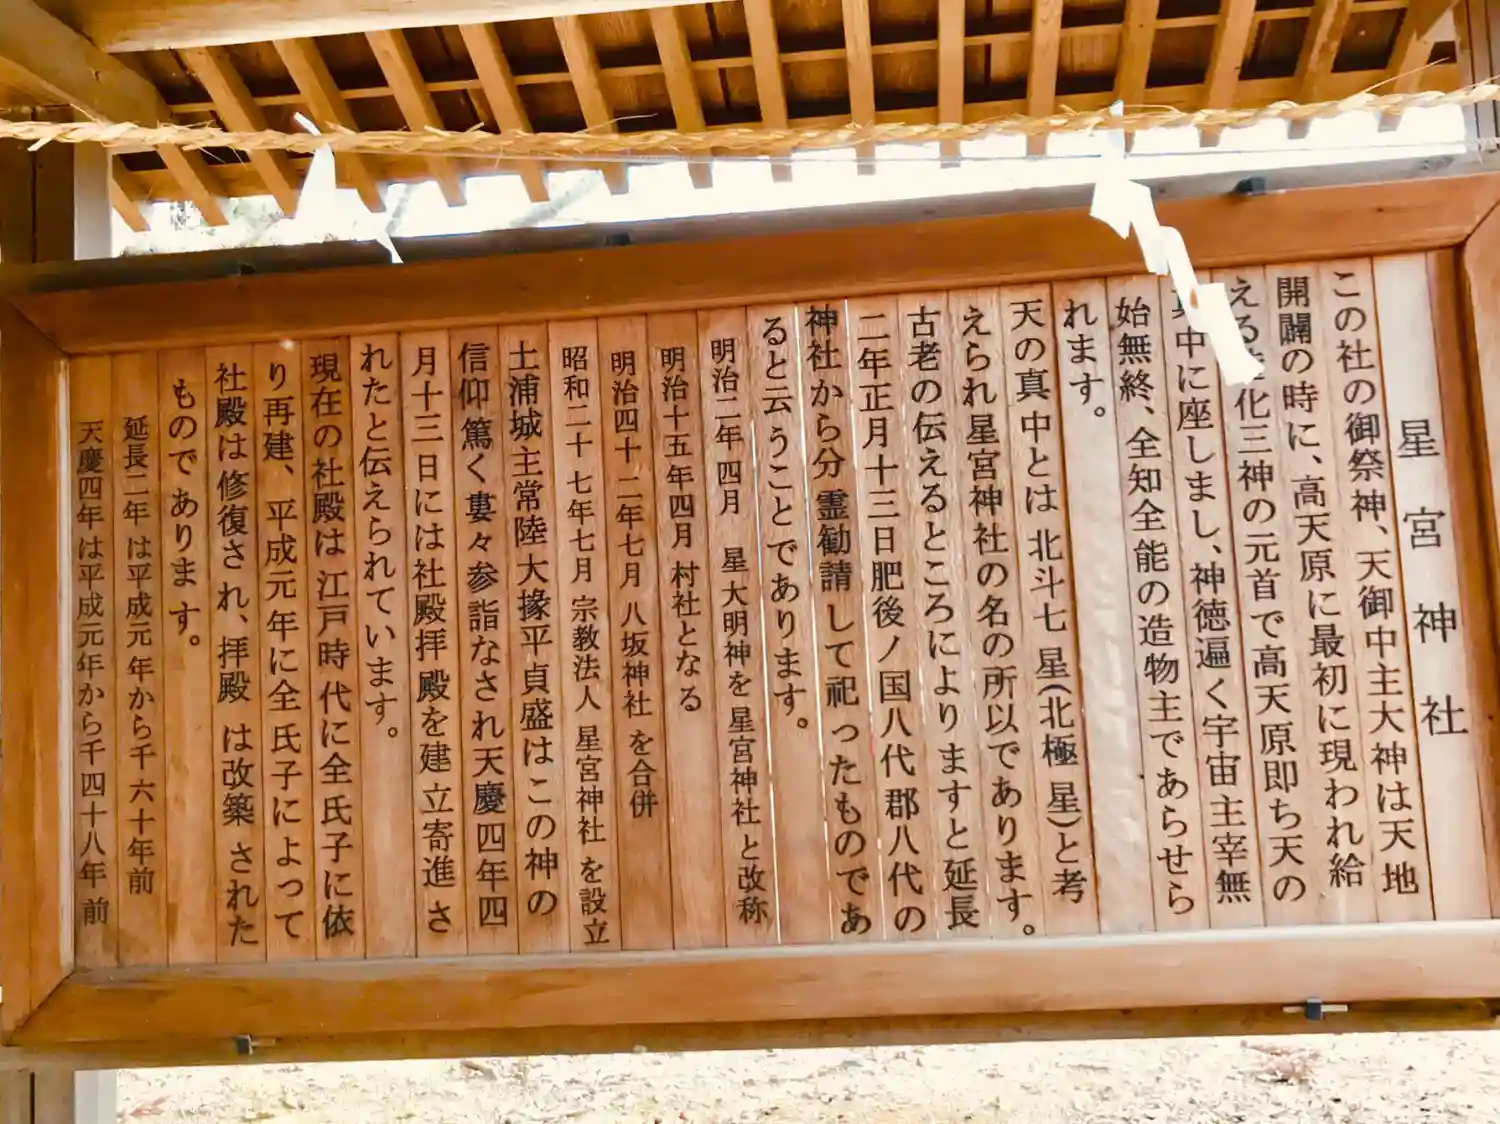 星宮神社
この社の御祭神、天御中主大神は天地
開闢の時に、高天原に最初に現われ給
える 化三神の元首で高天原即ち天の
真中に座しまし、神徳遍く宇宙主宰無
始無終、全知全能の造物主であらせら
れます。
天の真中とは北斗七星(北極星)と考
えられ星宮神社の名の所以であります。
古老の伝えるところによりますと延長
二年正月十三日肥後ノ国八代郡八代の
神社から分霊勧請して祀ったものであ
ると云うことであります。
明治二年四月 星大明神を星宮神社と改称
明治十五年四月 村社となる
明治四十二年七月 八坂神社を合併
昭和二十七年七月 宗教法人 星宮神社を設立
土浦城主常陸大掾平貞盛はこの神の
信仰篤く婁々参詣なされ天慶四年四
月十三日には社殿拝殿を建立寄進さ
れたと伝えられています。
現在の社殿は江戸時代に全氏子に依
り再建、平成元年に全氏子によって
社殿は修復され、拝殿は改築された
ものであります。
延長二年は平成元年から千六十年前
天慶四年は平成元年から千四十八年前